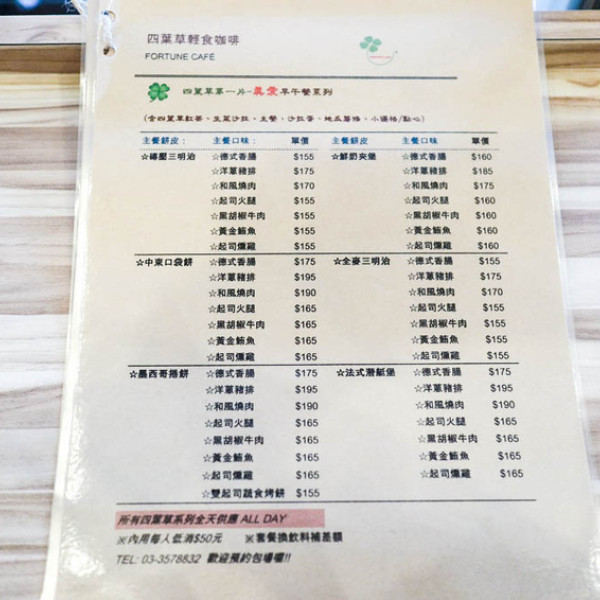 四葉草輕食咖啡
FORTUNE CAFÉ
四葉草第一片-真愛早午餐系列
(含四葉草紅茶、生菜沙拉、主餐、沙拉蛋、地瓜薯條、小優格/點心)
主餐餅皮： 主餐口味： 單價 主餐餅皮： 主餐口味 單價
☆磚壓三明治 ☆德式香腸 $155 ☆鮮奶夾堡 ☆德式香腸 $160
☆洋蔥豬排 $175 ☆洋蔥豬排 $185
☆和風燒肉 $170 ☆和風燒肉 $175
☆起司火腿 $155 ☆起司火腿 $160
☆黑胡椒牛肉 $155 ☆黑胡椒牛肉 $160
☆黃金鮪魚 $155 ☆黃金鮪魚 $160
☆起司燻雞 $155 ☆起司燻雞 $160
☆中東口袋餅 ☆德式香腸 $175 ☆全麥三明治 ☆德式香腸 $155
☆洋蔥豬排 $195 ☆洋蔥豬排 $175
☆和風燒肉 $190 ☆和風燒肉 $170
☆起司火腿 $165 ☆起司火腿 $155
☆黑胡椒牛肉 $165 ☆黑胡椒牛肉 $155
☆黃金鮪魚 $165 ☆黃金鮪魚 $155
☆起司燻雞 $165 ☆起司燻雞 $155
☆墨西哥捲餅 ☆德式香腸 $175 ☆法式潛艇堡 ☆德式香腸 $175
☆洋蔥豬排 $195 ☆洋蔥豬排 $195
☆和風燒肉 $190 ☆和風燒肉 $190
☆起司火腿 $165 ☆起司火腿 $165
☆黑胡椒牛肉 $165 ☆黑胡椒牛肉 $165
☆黃金鮪魚 $165 ☆黃金鮪魚 $165
☆起司燻雞 $165 ☆起司燻雞 $165
☆雙起司蔬食烤餅 $155
所有四葉草系列全天供應 ALL DAY
※內用每人低消$50元 ※套餐換飲料補差額
TEL: 03-3578832 歡迎預約包場喔!!